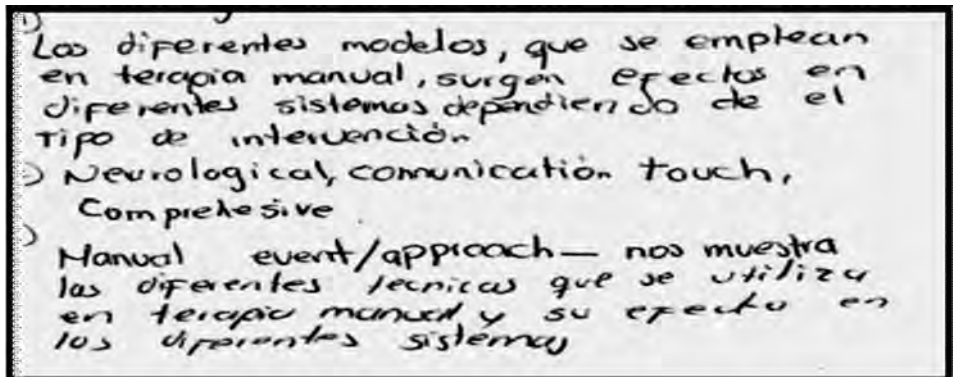 Los diferentes modelos, que se emplean
en terapia manual, surgen efectos en
diferentes sistemas dependiendo de el
Tipo de intervención
) Neurological, comunicatión touch,
Comprehesive
)
Manual event/approach — nos muestra
las diferentes tecnicas que se utiliza
en terapia manual y su efecto en
los diferentes sistemas